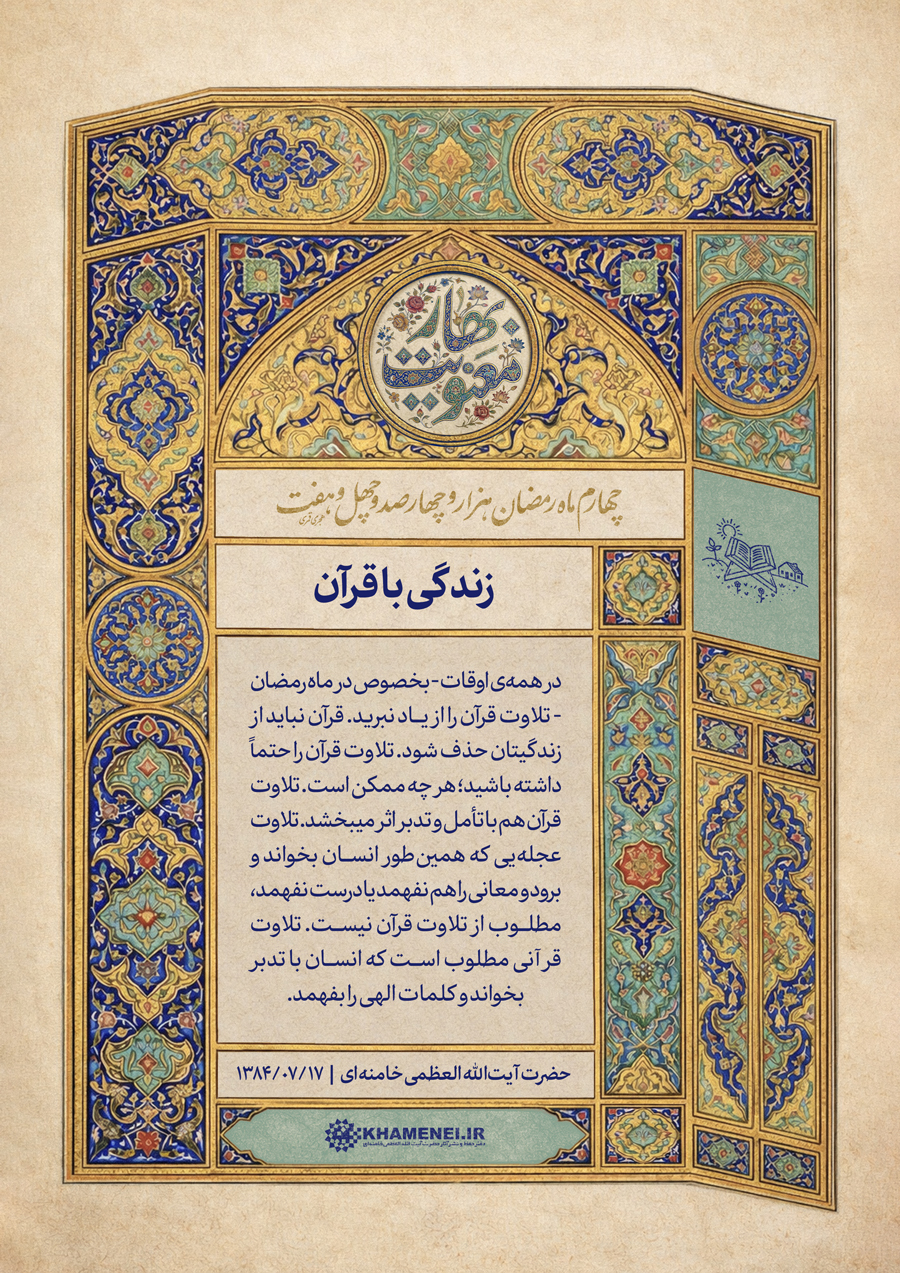 بهار
معنویت
چهارم ماه رمضان هزار و چهارصد و چهل و هفت
هجری قمری
زندگی با قرآن
در همه‌ی اوقات - بخصوص در ماه رمضان
- تلاوت قرآن را از یـاد نبرید. قرآن نباید از
زندگیتان حذف شود. تلاوت قرآن را حتماً
داشته باشید؛ هر چه ممکن است. تلاوت
قرآن هم با تأمل و تدبر اثر میبخشد. تلاوت
عجله‌یی که همین طور انسـان بخواند و
برود و معانی را هم نفهمد یا درست نفهمد،
مطلـوب از تلاوت قرآن نیسـت. تلاوت
قرآنی مطلوب اسـت که انسـان با تدبر
بخواند و کلمات الهی را بفهمد.
حضرت آیت‌الله العظمی خامنه‌ای | ۱۳۸۴/۰۷/۱۷
KHAMENEI.IR
دفتر حفظ و نشر آثار حضرت آیت‌الله العظمی خامنه‌ای